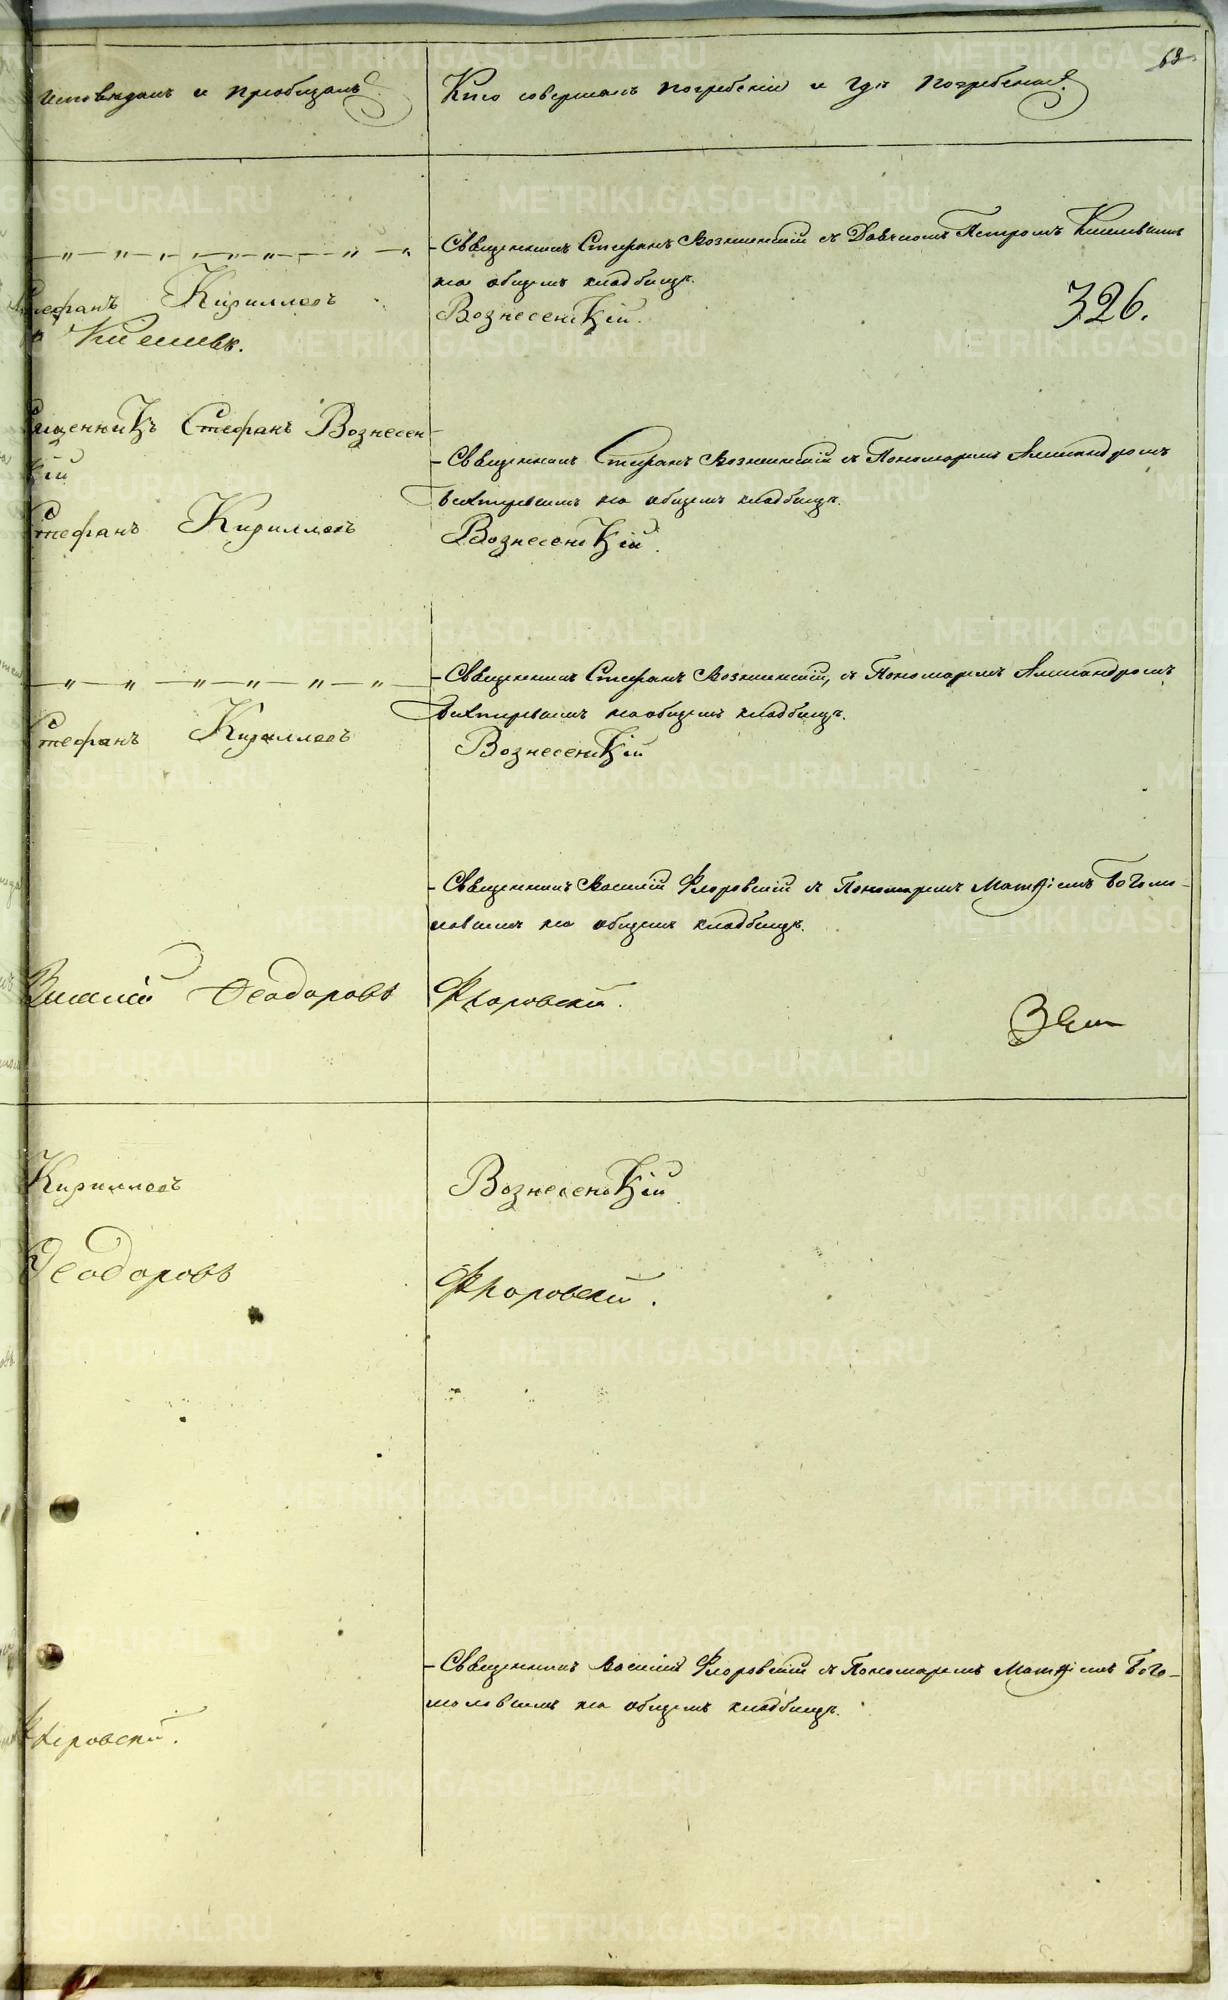 68
исповѣдалъ и пріобщалъ. Кто совершалъ погребеніе и гдѣ погребены.
Священникъ Стефанъ Вознесенскій съ Дьячкомъ Петромъ Киселевымъ
на общемъ кладбищѣ.
326.
Стефанъ Кирилловъ Вознесенскій.
Киселевъ.
Священникъ Стефанъ Вознесен
скій
Священникъ Стефанъ Вознесенскій съ Пономаремъ Александромъ
на общемъ кладбищѣ.
Стефанъ Кирилловъ Вознесенскій.
Священникъ Стефанъ Вознесенскій, съ Пономаремъ Александромъ
на общемъ кладбищѣ.
Стефанъ Кирилловъ Вознесенскій
Священникъ Василій Флоровскій съ Пономаремъ Матѳіемъ Богомо-
ловымъ на общемъ кладбищѣ.
Василій Ѳеодоровъ Флоровскій.
Кирилловъ Вознесенскій
Ѳеодоровъ Флоровскій.
Священникъ Василій Флоровскій съ Пономаремъ Матѳіемъ Бого-
моловымъ на общемъ кладбищѣ.
Флоровскій.
METRIKI.GASO-URAL.RU